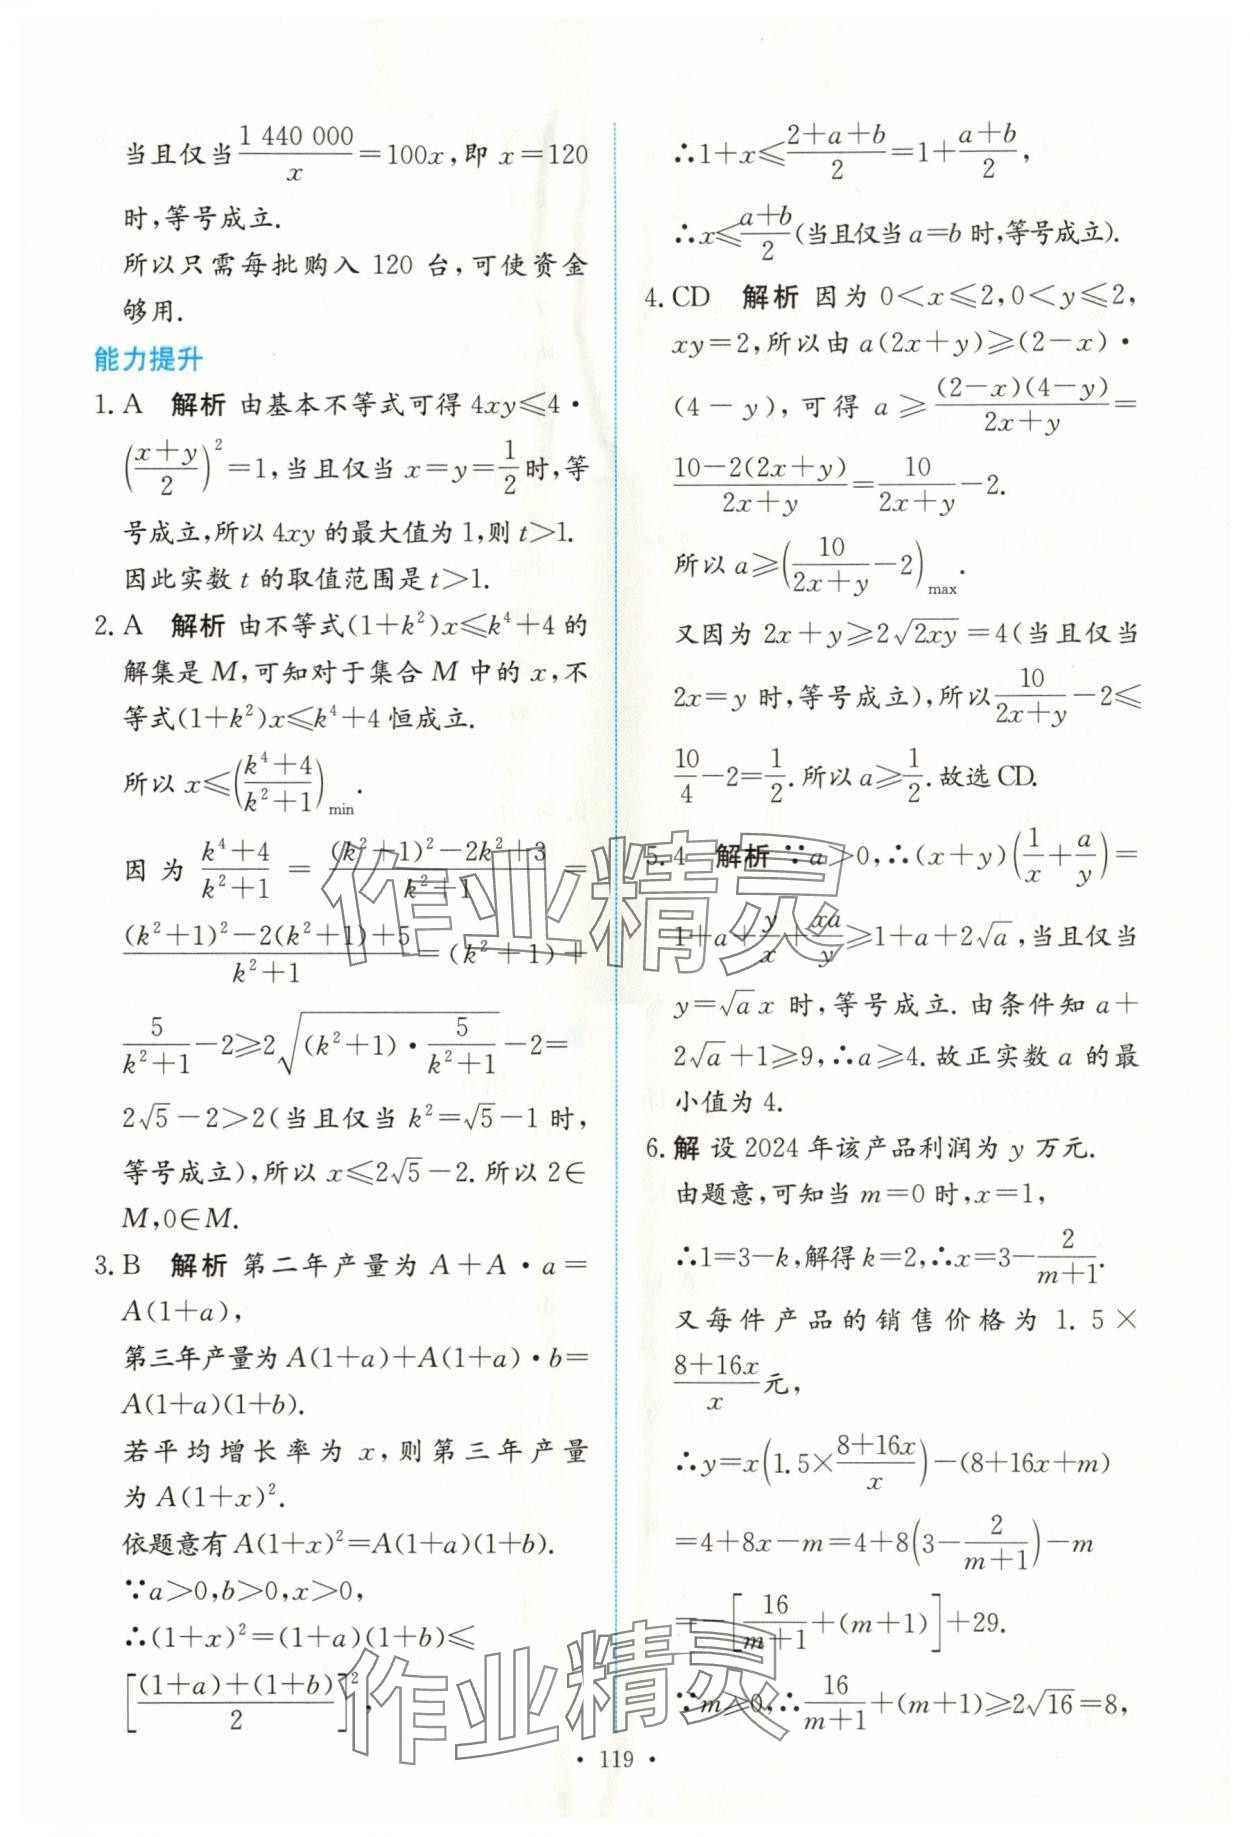 当且仅当\frac{1 440 000}{x}=100x,即 x=120
时,等号成立.
所以只需每批购入 120 台,可使资金
够用.
能力提升
1. A 解析 由基本不等式可得 4xy≤4·
(\frac{x+y}{2})^2=1,当且仅当 x=y=\frac{1}{2}时,等
号成立,所以 4xy 的最大值为 1,则 t>1.
因此实数 t 的取值范围是 t>1.
2. A 解析 由不等式(1+k^2)x≤k^4+4 的
解集是 M,可知对于集合 M 中的 x,不
等式(1+k^2)x≤k^4+4 恒成立.
所以 x≤(\frac{k^4+4}{k^2+1})_{min}.
因为 \frac{k^4+4}{k^2+1} = \frac{(k^2+1)^2-2k^2+3}{k^2+1} =
\frac{(k^2+1)^2-2(k^2+1)+5}{k^2+1}=(k^2+1)+
\frac{5}{k^2+1}-2≥2\sqrt{(k^2+1)·\frac{5}{k^2+1}}-2=
2\sqrt{5}-2>2(当且仅当 k^2=\sqrt{5}-1 时,
等号成立),所以 x≤2\sqrt{5}-2. 所以 2∈
M,0∈M.
3. B 解析 第二年产量为 A+A·a=
A(1+a),
第三年产量为 A(1+a)+A(1+a)·b=
A(1+a)(1+b).
若平均增长率为 x,则第三年产量
为 A(1+x)^2.
依题意有 A(1+x)^2=A(1+a)(1+b).
∵a>0,b>0,x>0,
∴(1+x)^2=(1+a)(1+b)≤
[\frac{(1+a)+(1+b)}{2}]^2,
∴1+x≤\frac{2+a+b}{2}=1+\frac{a+b}{2},
∴x≤\frac{a+b}{2}(当且仅当 a=b 时,等号成立).
4. CD 解析 因为 0<x≤2,0<y≤2,
xy=2,所以由 a(2x+y)≥(2-x)·
(4-y),可得 a≥\frac{(2-x)(4-y)}{2x+y}=
\frac{10-2(2x+y)}{2x+y}=\frac{10}{2x+y}-2.
所以 a≥(\frac{10}{2x+y}-2)_{max}.
又因为 2x+y≥2\sqrt{2xy}=4(当且仅当
2x=y 时,等号成立),所以\frac{10}{2x+y}-2≤
\frac{10}{4}-2=\frac{1}{2}.所以 a≥\frac{1}{2}.故选 CD.
5. 4 解析 ∵a>0,∴(x+y)(\frac{1}{x}+\frac{a}{y})=
1+a+\frac{y}{x}+\frac{xa}{y}≥1+a+2\sqrt{a},当且仅当
y=\sqrt{a}x 时,等号成立. 由条件知 a+
2\sqrt{a}+1≥9,∴a≥4. 故正实数 a 的最
小值为 4.
6. 解 设 2024 年该产品利润为 y 万元.
由题意,可知当 m=0 时,x=1,
∴1=3-k,解得 k=2,∴x=3-\frac{2}{m+1}.
又每件产品的销售价格为 1.5×
\frac{8+16x}{x}元,
∴y=x(1.5×\frac{8+16x}{x})-(8+16x+m)
=4+8x-m=4+8(3-\frac{2}{m+1})-m
=-[\frac{16}{m+1}+(m+1)]+29.
∵m≥0,∴\frac{16}{m+1}+(m+1)≥2\sqrt{16}=8,
· 119 ·
作业精灵
作业精灵